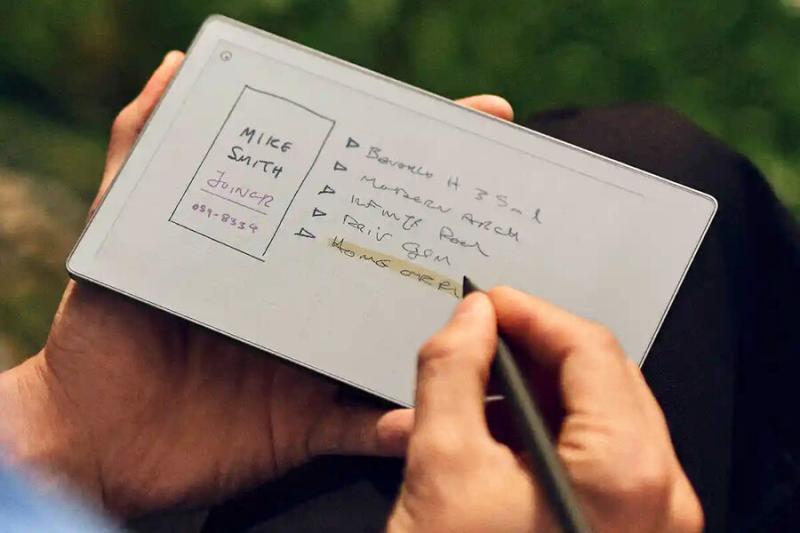 MIKE
SMITH
JOINER
059-8334
H 35ml
MODERN ARCH
INFINITE POOL
PRIV GYM
HOME OFFI